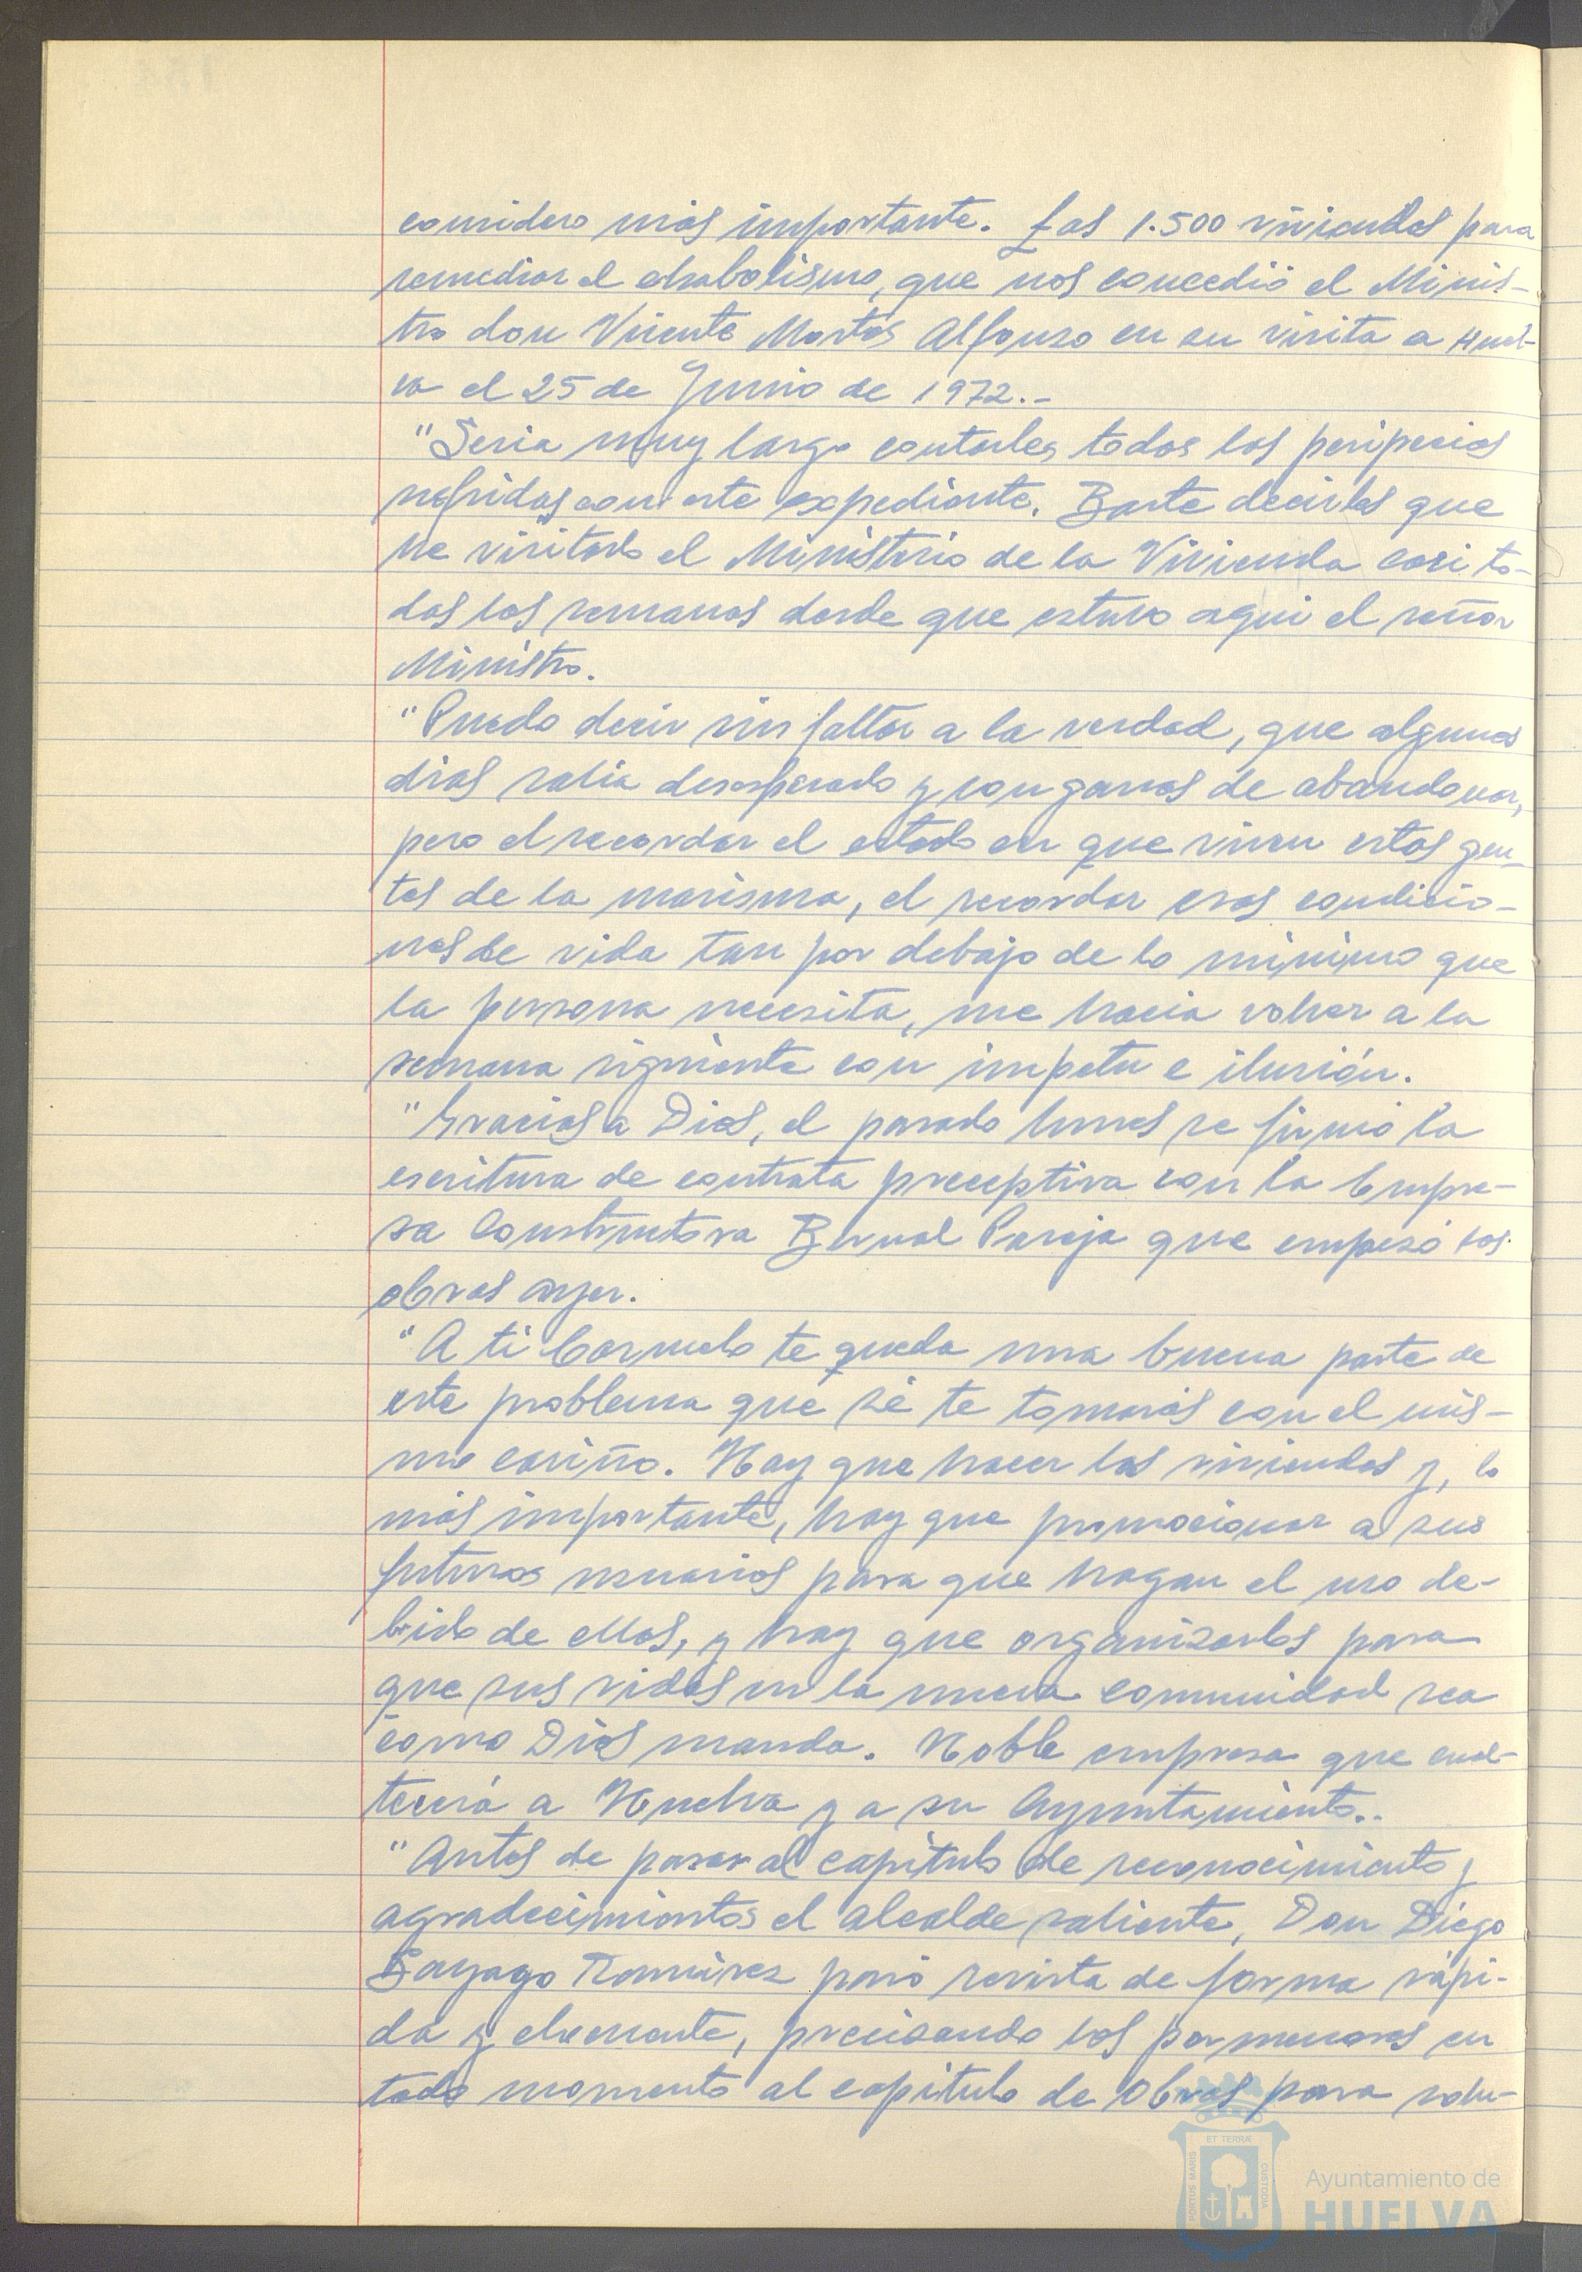 considero más importante. Las 1.500 viviendas para
remediar el chabolismo, que nos concedió el Minis-
tro don Vicente Mortes Alfonso en su visita a Huel-
va el 25 de Junio de 1972.-
"Seria muy largo contarles todas las peripecias
sufridas con este expediente. Baste decirles que
he visitado el Ministerio de la Vivienda casi to-
das las semanas desde que estuvo aqui el señor
Ministro.
"Puedo decir sin faltar a la verdad, que algunos
dias salia desesperado y con ganas de abandonar,
pero el recordar el estado en que viven estas gen-
tes de la marisma, el recordar esas condicio-
nes de vida tan por debajo de lo minimo que
la persona necesita, me hacia volver a la
semana siguiente con impetu e ilusión.
"Gracias a Dios, el pasado lunes se firmó la
escritura de contrata preceptiva con la Empre-
sa Constructora Bernal Pareja que empezó las
obras ayer.
"A ti Carmelo te queda una buena parte de
este problema que sé te tomarás con el mis-
mo cariño. Hay que hacer las viviendas y, lo
más importante, hay que promocionar a sus
futuros usuarios para que hagan el uso de-
bido de ellas, y hay que organizarlos para
que sus vidas en la nueva comunidad sea
como Dios manda. Noble empresa que enal-
tecerá a Huelva y a su Ayuntamiento..
"Antes de pasar al capitulo de reconocimiento y
agradecimientos el alcalde saliente, Don Diego
Sayago Ramirez pasó revista de forma rápi-
da y elocuente, precisando los pormenores en
todo momento al capitulo de Obras para solu-
ET TERRÆ
PORTUS MARIS
CUSTODIA
Ayuntamiento de
HUELVA